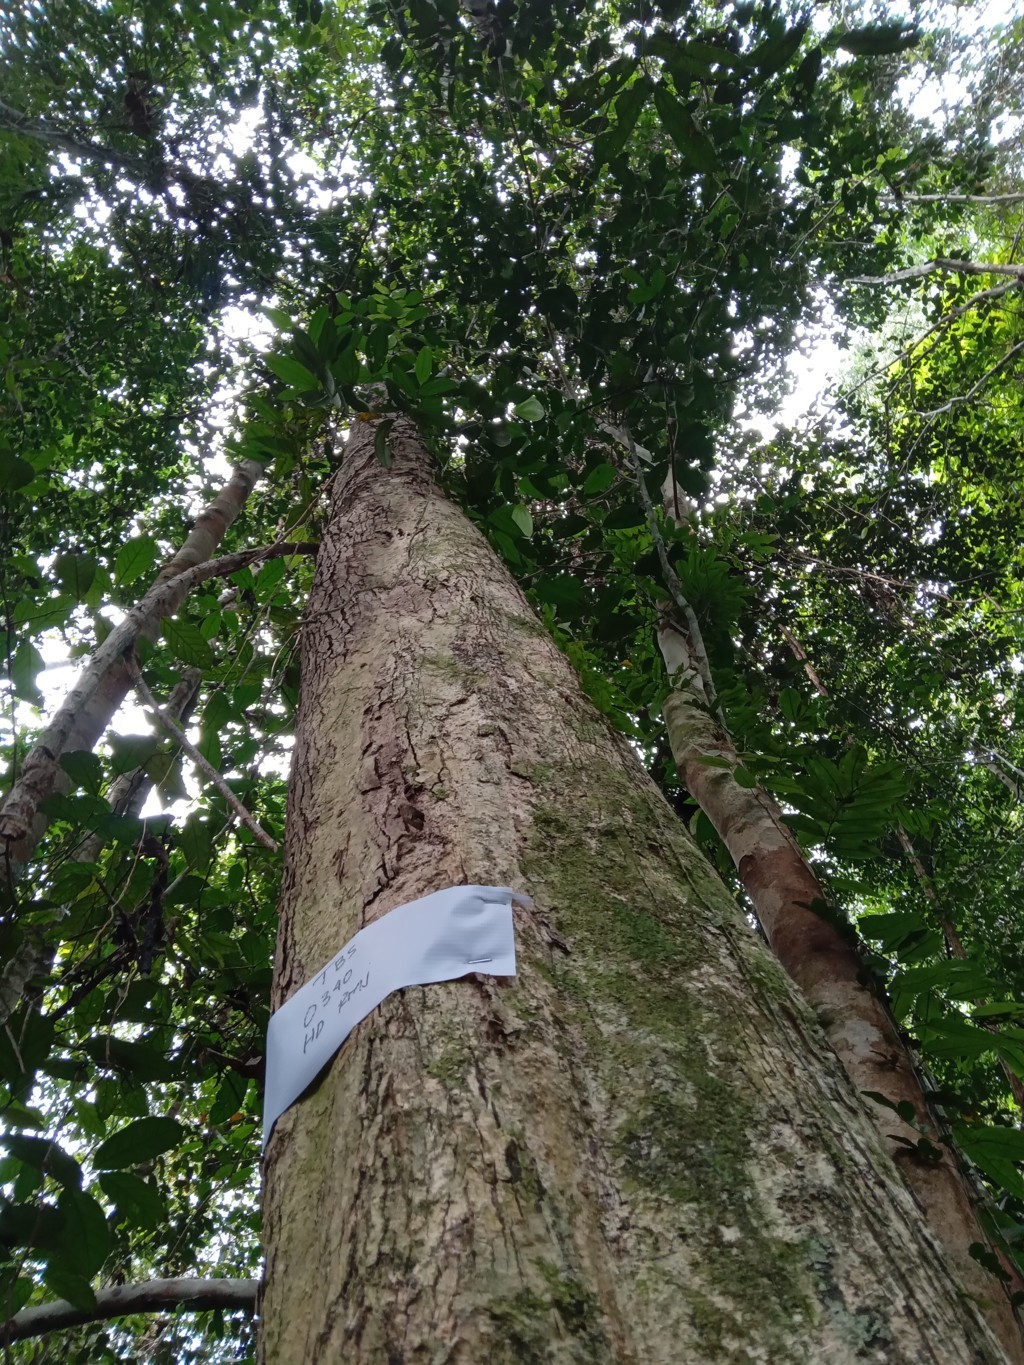 TBS
0340
HD RMN